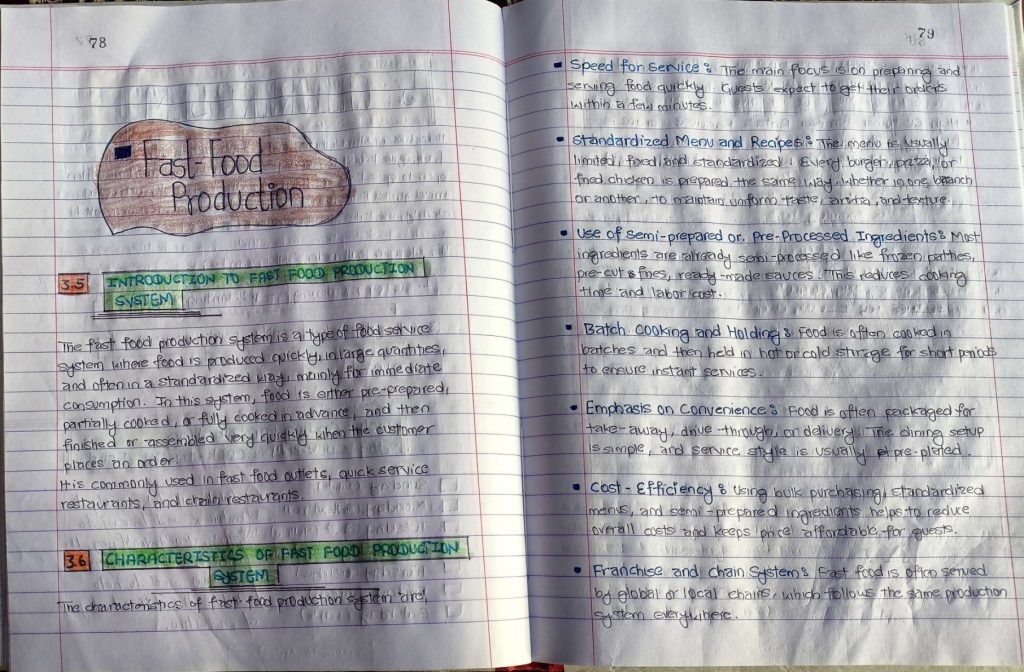 78
Fast-Food
Production
3.5 INTRODUCTION TO FAST FOOD PRODUCTION
SYSTEM
The fast food production system is a type of food service
system where food is produced quickly, in large quantities,
and often in a standardized way, mainly for immediate
consumption. In this system, food is either pre-prepared,
partially cooked, or fully cooked in advance, and then
finished or assembled very quickly when the customer
places an order.
It is commonly used in fast food outlets, quick service
restaurants, and chain restaurants.
3.6 CHARACTERISTICS OF FAST FOOD PRODUCTION
SYSTEM
The characteristics of fast food production system are,
79
• Speed for Service : The main focus is on preparing and
serving food quickly. Guests expect to get their orders
within a few minutes.
• Standardized Menu and Recipes : The menu is usually
limited, fixed, and standardized. Every burger, pizza, or
fried chicken is prepared the same way, whether in one branch
or another, to maintain uniform taste, aroma, and texture.
• Use of Semi-prepared or Pre-Processed Ingredients : Most
ingredients are already semi-processed like frozen patties,
pre-cut fries, ready-made sauces. This reduces cooking
time and labor cost.
• Batch Cooking and Holding : Food is often cooked in
batches and then held in hot or cold storage for short periods
to ensure instant services.
• Emphasis on Convenience : Food is often packaged for
take-away, drive-through, or delivery. The dining setup
is simple, and service style is usually pre-plated.
• Cost-Efficiency : Using bulk purchasing, standardized
menus, and semi-prepared ingredients helps to reduce
overall costs and keeps price affordable for guests.
• Franchise and Chain System : Fast food is often served
by global or local chains, which follows the same production
system everywhere.